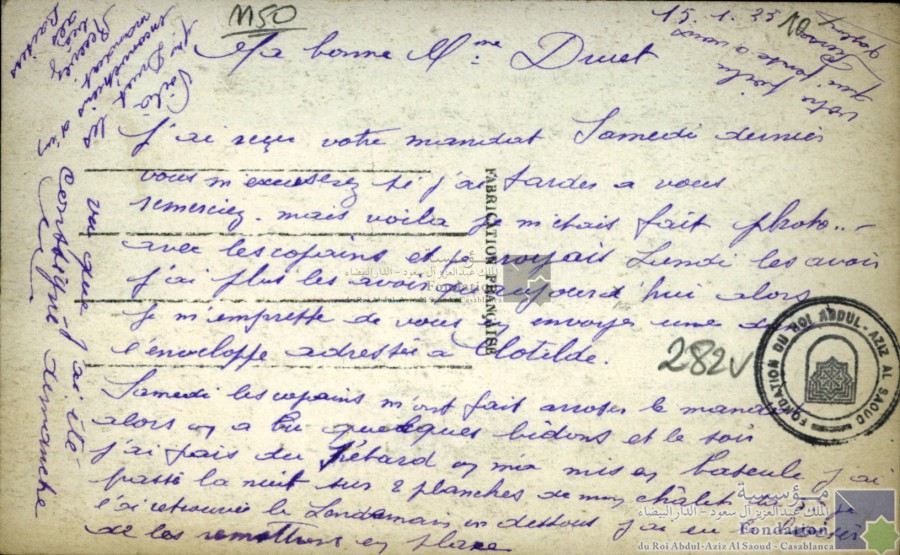 1150
15.1.33
10
Ma bonne Mme Druet
J'ai reçu votre mandat Samedi dernier
vous m'excuserez si j'ai tardes a vous
remerciez. mais voila je m'étais fait photo..-
avec les copains et je croyais Lundi les avoir
j'ai plus les avoir que aujourd'hui alors
Je m'empresse de vous en envoyer une dans
l'enveloppe adressée a Clotilde.
Samedi les copains m'ont fait arroser le mandat
alors on a bu quelques bidons et le soir
j'ai fais du Pétard on m'a mis en bascule j'ai
passé la nuit sur 2 planches de mon châlit
l'ai retrouvée le Lendemain en dessous j'ai eu
de les remettre en place
vu que j'ai été
consigné dimanche
Voilà
Me Druet les
inconvénients d'un
mandat
FABRICATION FRANÇAISE
282v
FONDATION DU ROI ABDUL-AZIZ AL SAOUD
مؤسسة
الملك عبد العزيز آل سعود - الدار البيضاء
Fondation
du Roi Abdul-Aziz Al Saoud - Casablanca